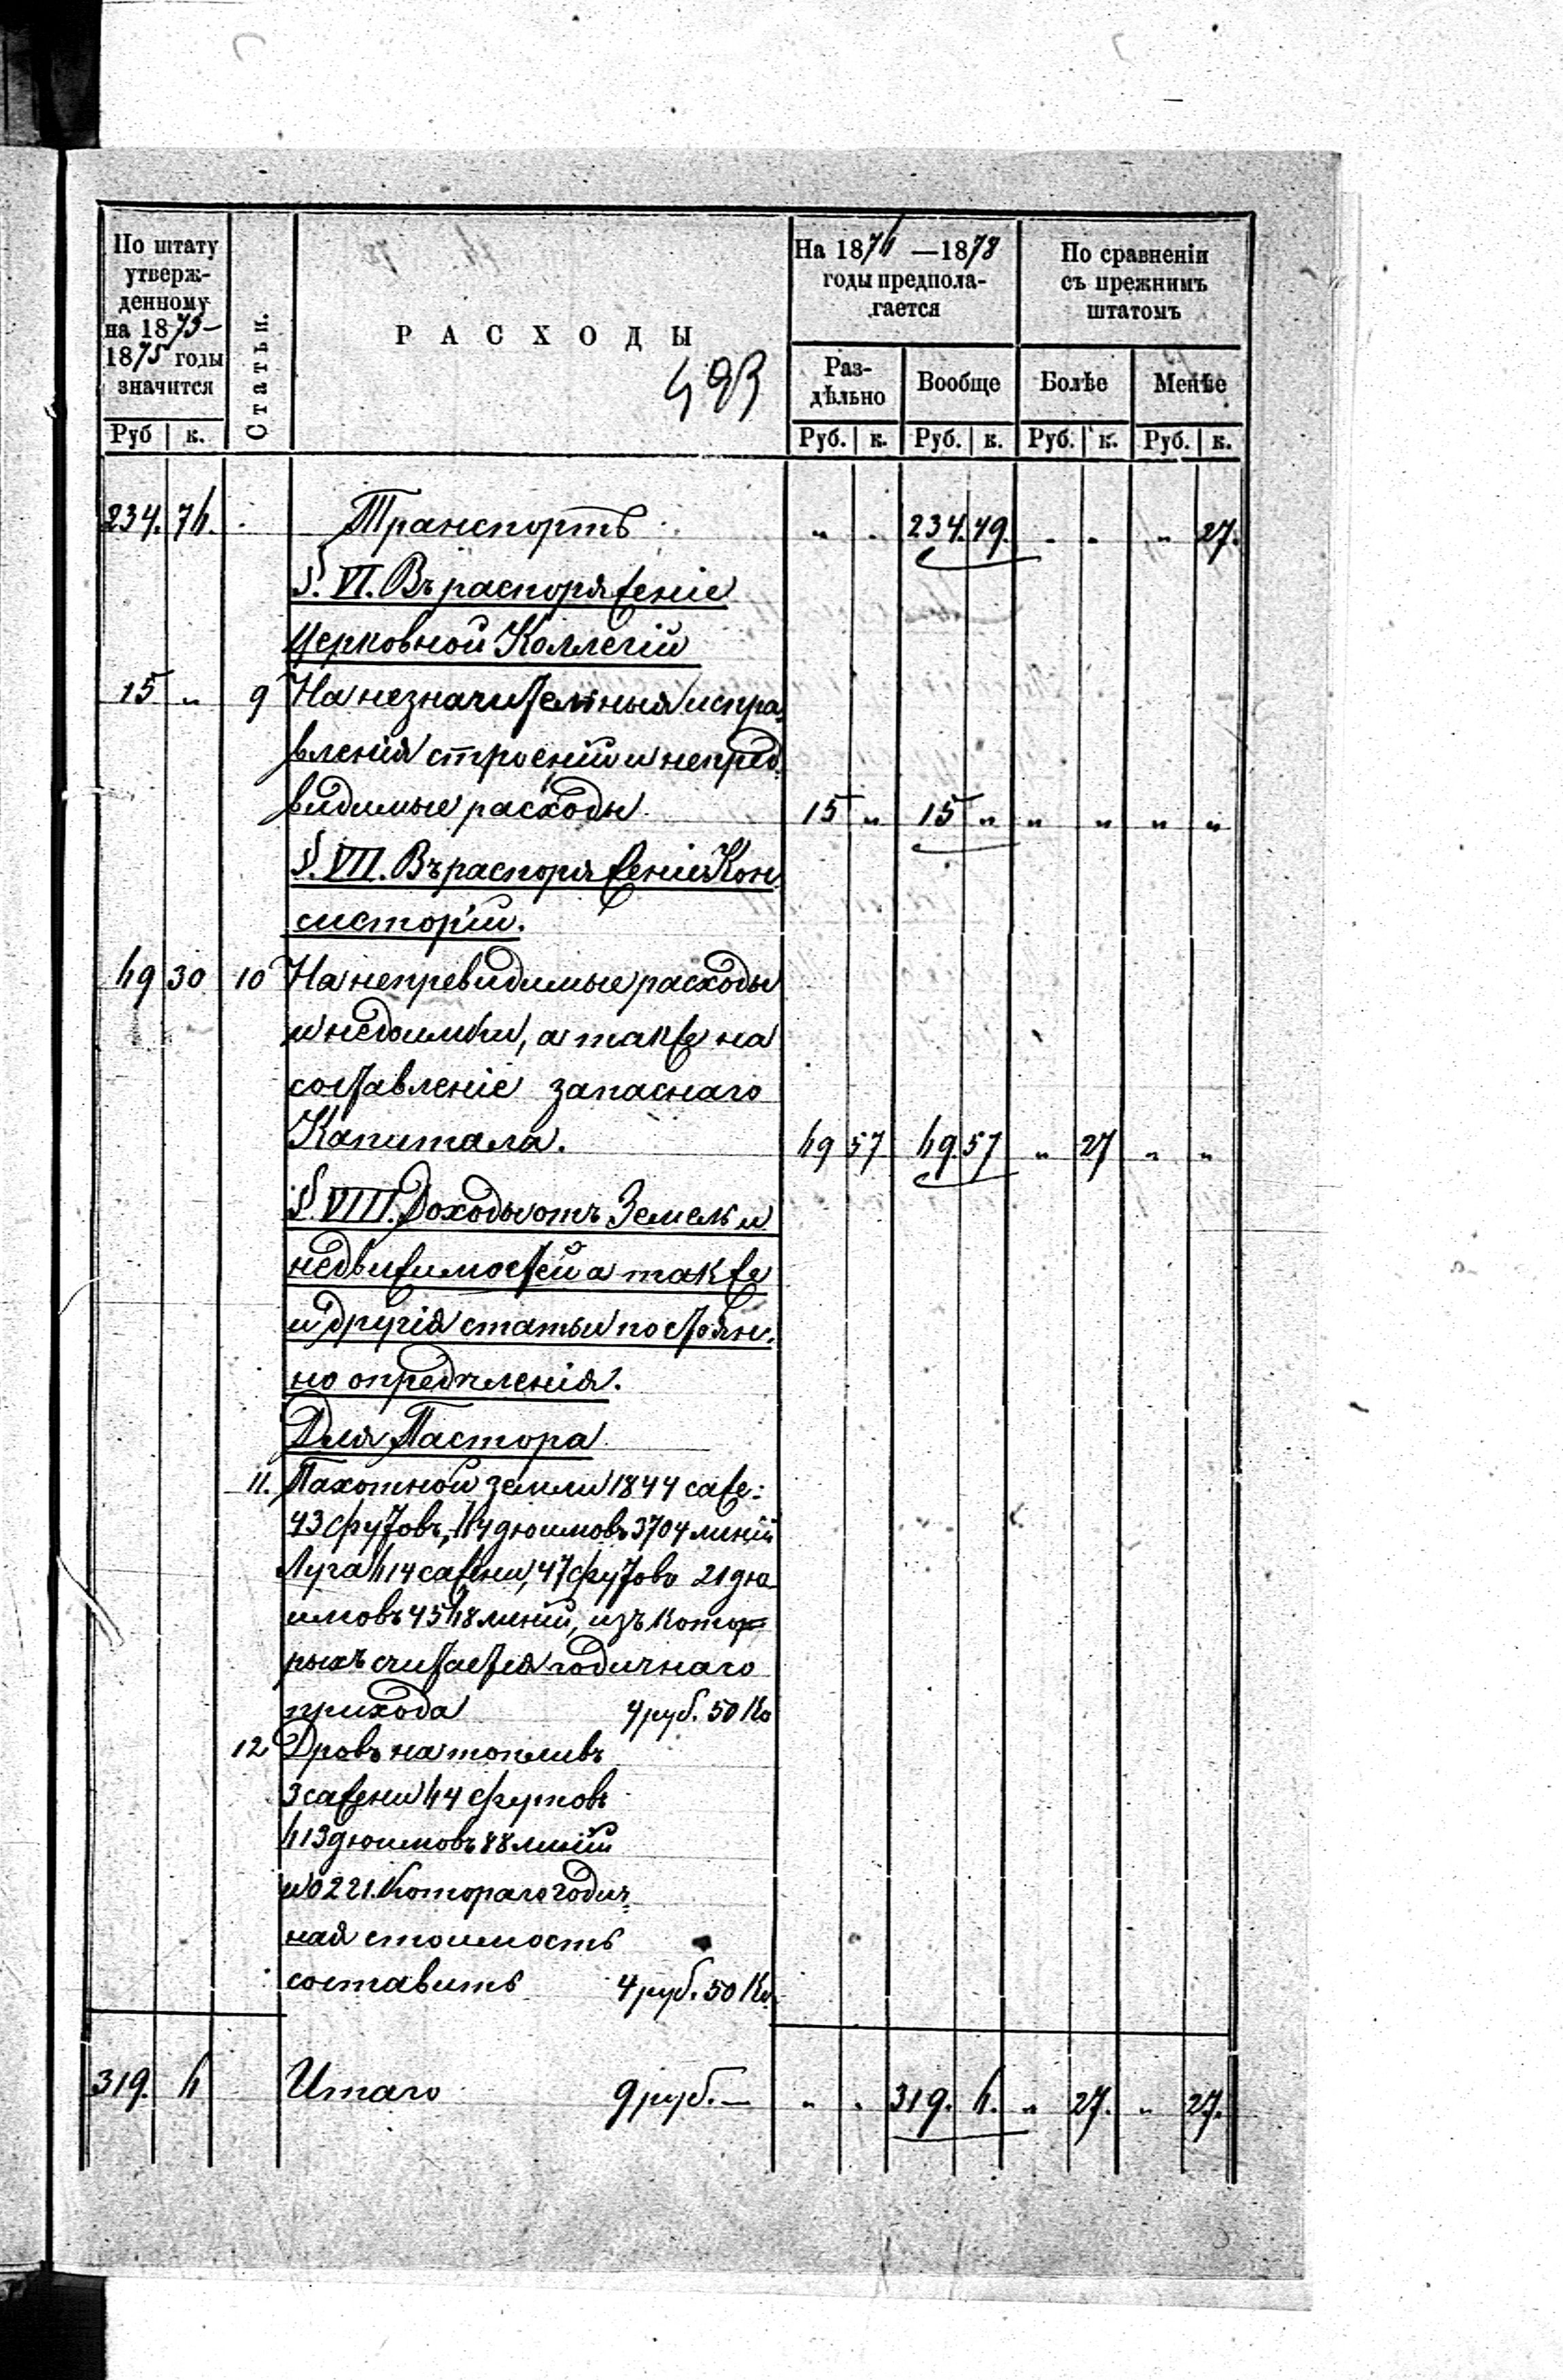 По штату
утверж-
денному
на 1873–
1875 годы
значится
Руб к.
Статьи.
РАСХОДЫ
493
На 1876 —1878
годы предпола-
гается
Раз-
дѣльно
Вообще
По сравненіи
съ прежнимъ
штатомъ
Болѣе
Менѣе
Руб. к. Руб. к. Руб. к. Руб. к.
234. 76. Транспортъ „ „ 234. 49. „ „ „ 27.
§. VI. Въ распоряженіе
Церковной Коллегіи
15 „ 9 На незначительныя испра-
вленія строеній и непред-
видимые расходы 15 „ 15 „ „ „ „ „
§. VII. Въ распоряженія Кон-
систоріи.
69 30 10 На непревидимые расходы
и недоимки, а также на
составленіе запаснаго
Капитала. 69 57 69. 57 „ 27 „ „
§. VIII. Доходы отъ Земель и
недвижимостей а также
и другія статьи постоян-
но опредѣленія.
Для Пастора
11. Пахотной земли 1844 саже:
43 футовъ, 114 дюймовъ 3704 линій
Луга 614 сажени, 47 футовъ 21 дю-
ймовъ 4568 линій, изъ кото-
рыхъ считается годичнаго
прихода 4 руб. 50 Ко
12 Дровъ на топливъ
3 сажени 64 футовъ
613 дюймовъ 88 линій
и 0221. котораго годич-
ная стоимость
составитъ 4 руб. 50 Ко.
319. 6 Итаго 9 руб. — „ „ 319. 6. „ 27. „ 27.